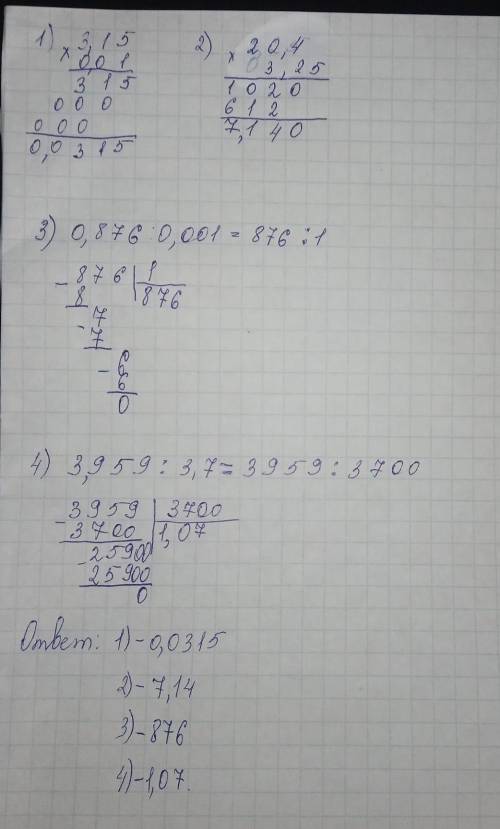 1) 3,15 2) 20,4
× 0,01 × 03,25
315 1020
000 612
000 7,140
0,0315
3) 0,876 : 0,001 = 876 : 1
- 876 | 1
8 876
- 7
7
- 6
6
0
4) 3,959 : 3,7 = 3959 : 3700
- 3959 | 3700
3700 1,07
- 25900
25900
0
Ответ: 1) - 0,0315
2) - 7,14
3) - 876
4) - 1,07.